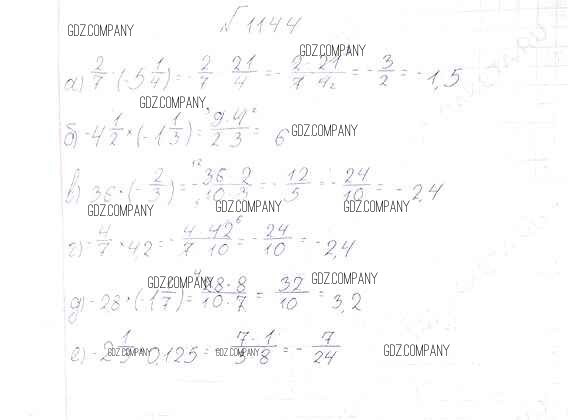 √1144
GDZ.COMPANY
GDZ.COMPANY
а) 2/7 · (-5 1/4) = - 2/7 · 21/4 = - 2 · 21 / 7 · 4 2 = - 3/2 = -1,5
GDZ.COMPANY
б) -4 1/2 × (-1 1/3) = 9 · 4 / 2 · 3 = 6 GDZ.COMPANY
в) 3,6 · (- 2/3) = - 36 · 2 / 10 · 3 = - 12/5 = - 24/10 = -2,4
GDZ.COMPANY GDZ.COMPANY GDZ.COMPANY
г) - 4/7 × 4,2 = - 4 · 42 6 / 7 · 10 = - 24/10 = -2,4
GDZ.COMPANY GDZ.COMPANY
д) -2,8 · (-1 1/7) = 28 · 8 / 10 · 7 = 32/10 = 3,2
е) -2 1/3 · 0,125 = - 7 · 1 / 3 · 8 = - 7/24
GDZ.COMPANY GDZ.COMPANY GDZ.COMPANY